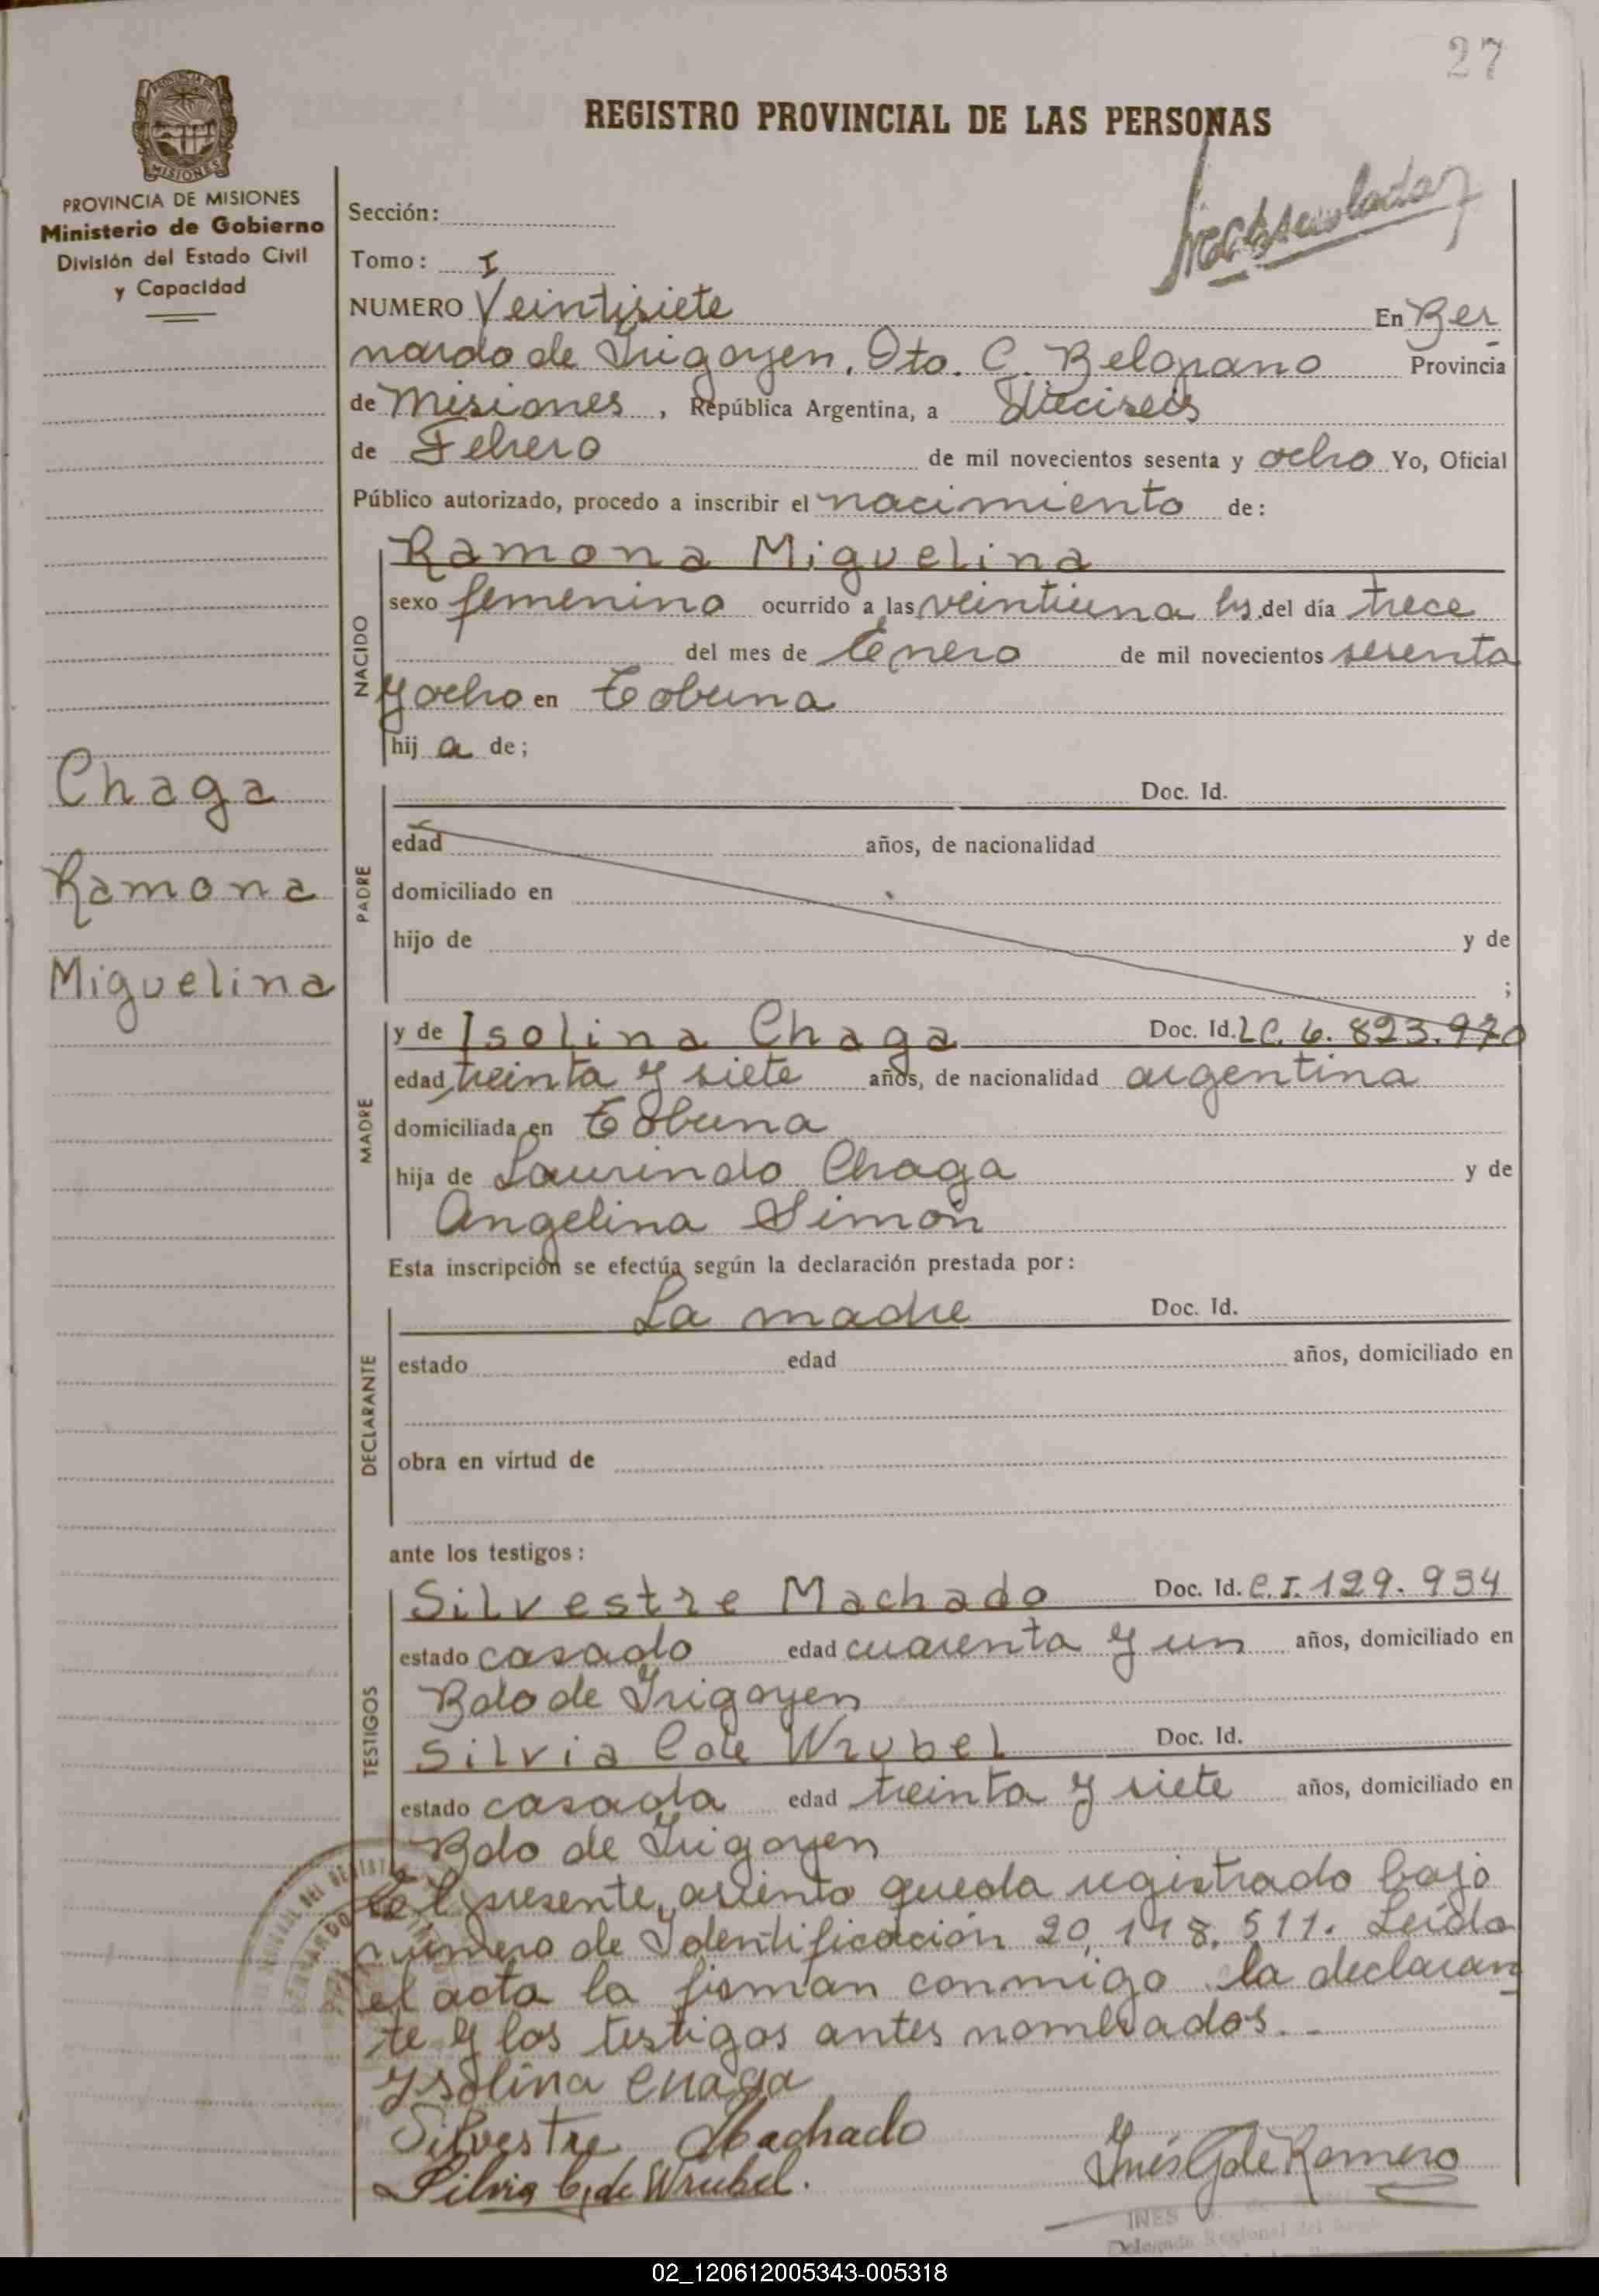 27
REGISTRO PROVINCIAL DE LAS PERSONAS
PROVINCIA DE MISIONES
Ministerio de Gobierno
División del Estado Civil
y Capacidad
Chaga
Ramona
Miguelina
Sección:
Tomo: I
NUMERO Veintisiete En Ber
nardo de Irigoyen, Dto. G. Belgrano Provincia
de Misiones, República Argentina, a dieciseis
de Febrero de mil novecientos sesenta y ocho Yo, Oficial
Público autorizado, procedo a inscribir el nacimiento de:
NACIDO
Ramona Miguelina
sexo femenino ocurrido a las veintiuna hs. del día trece
del mes de Enero de mil novecientos sesenta
y ocho en Tobuna
hij a de;
PADRE
Doc. Id.
edad años, de nacionalidad
domiciliado en
hijo de y de
;
MADRE
y de Isolina Chaga Doc. Id. LC. 6.823.970
edad, treinta y siete años, de nacionalidad argentina
domiciliada en Tobuna
hija de Laurindo Chaga y de
Angelina Simon
Esta inscripción se efectúa según la declaración prestada por:
DECLARANTE
La madre Doc. Id.
estado edad años, domiciliado en
obra en virtud de
ante los testigos:
TESTIGOS
Silvestre Machado Doc. Id. C.I. 129.934
estado casado edad cuarenta y un años, domiciliado en
Bdo de Irigoyen
Silvia C de Wrubel Doc. Id.
estado casada edad treinta y siete años, domiciliado en
Bdo de Irigoyen
El presente, asiento queda registrado bajo
numero de Identificación 20,118.511. Leída
el acta la firman conmigo la declaran
te y los testigos antes nombrados.-
Ysolina Chaga
Silvestre Machado
Silvia C. de Wrubel.
Inés G de Romero
INES
02_120612005343-005318